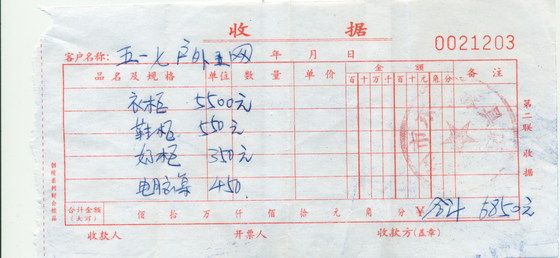 收 据
0021203
客户名称: 五一七户外网 年 月 日
品名及规格 单位 数量 单价 金额 备注
百 十 万 千 百 十 元 角 分
衣柜 5500元
鞋柜 550元
柜 350元
电脑桌 450
合计金额 (大写) 佰 拾 万 仟 佰 拾 元 角 分 ¥ 合计 6850元
收款人 开票人 收款方(盖章)
第二联 收据